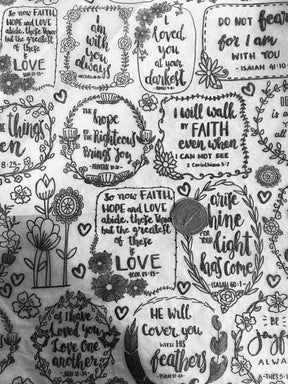 So now FAITH,
HOPE and LOVE
abide, these three
but the greatest
of these
is
LOVE
am
with you
always
I
loved
you
at your
darkest
DO NOT fear
for I am
WITH YOU
- ISAIAH 41:10
things
8:25-
THE
hope
OF THE
Righteous
Brings Joy
- PROVERBS
I will walk
by FAITH
even when
I CAN NOT SEE
2 Corinthians 5:7
So now FAITH,
HOPE and LOVE
abide, these three
but the greatest
of these
is
LOVE
arise
shine
FOR YOUR
light
has come
- ISAIAH 60:1 -
as I have
Loved you
Love one
another
HE Will
Cover you
WITH HIS
feathers
BE
Joyful
ALWAYS
THES 5:16